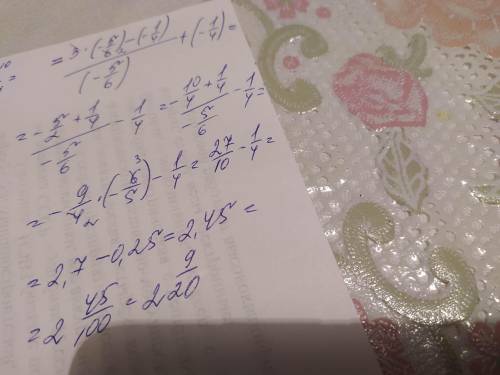 = (3 · (-5/6) - (-1/4)) / (-5/6) + (-1/4) =
= (-5/2 + 1/4) / (-5/6) - 1/4 = (-10/4 + 1/4) / (-5/6) - 1/4 =
= -9/4 · (-6/5) - 1/4 = 27/10 - 1/4 =
= 2,7 - 0,25 = 2,45 =
= 2 45/100 = 2 9/20